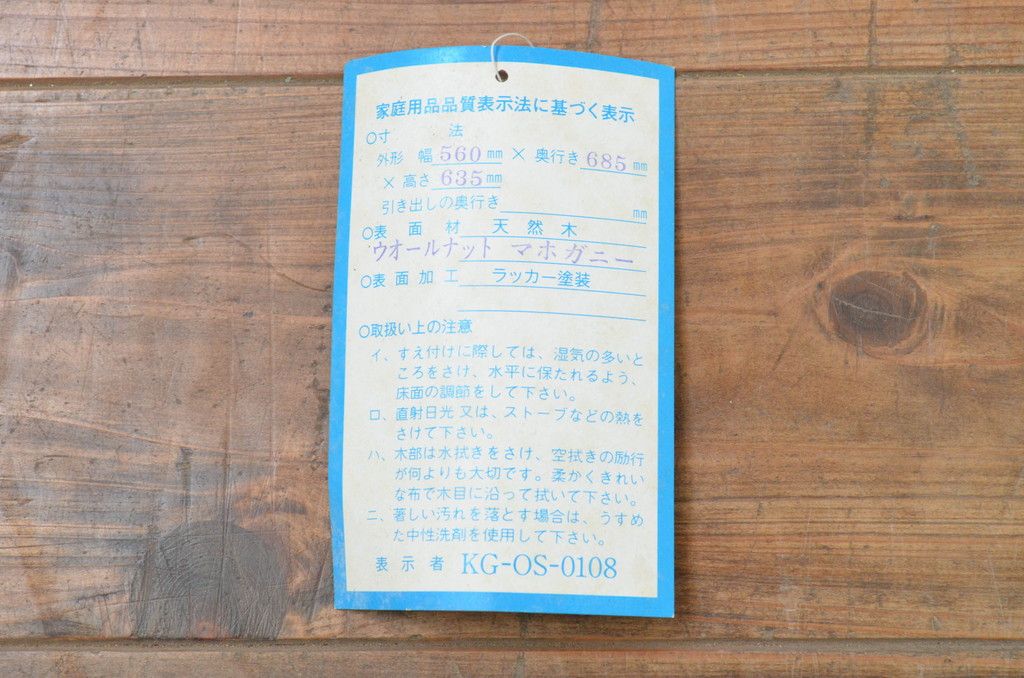 家庭用品品質表示法に基づく表示
○寸法
外形 幅 560 mm × 奥行き 685 mm
× 高さ 635 mm
引き出しの奥行き mm
○表面材 天然木
ウオールナット マホガニー
○表面加工 ラッカー塗装
○取扱い上の注意
イ、すえ付けに際しては、湿気の多いと
ころをさけ、水平に保たれるよう、
床面の調節をして下さい。
ロ、直射日光又は、ストーブなどの熱を
さけて下さい。
ハ、木部は水拭きをさけ、空拭きの励行
が何よりも大切です。柔かくきれい
な布で木目に沿って拭いて下さい。
ニ、著しい汚れを落とす場合は、うすめ
た中性洗剤を使用して下さい。
表示者 KG-OS-0108